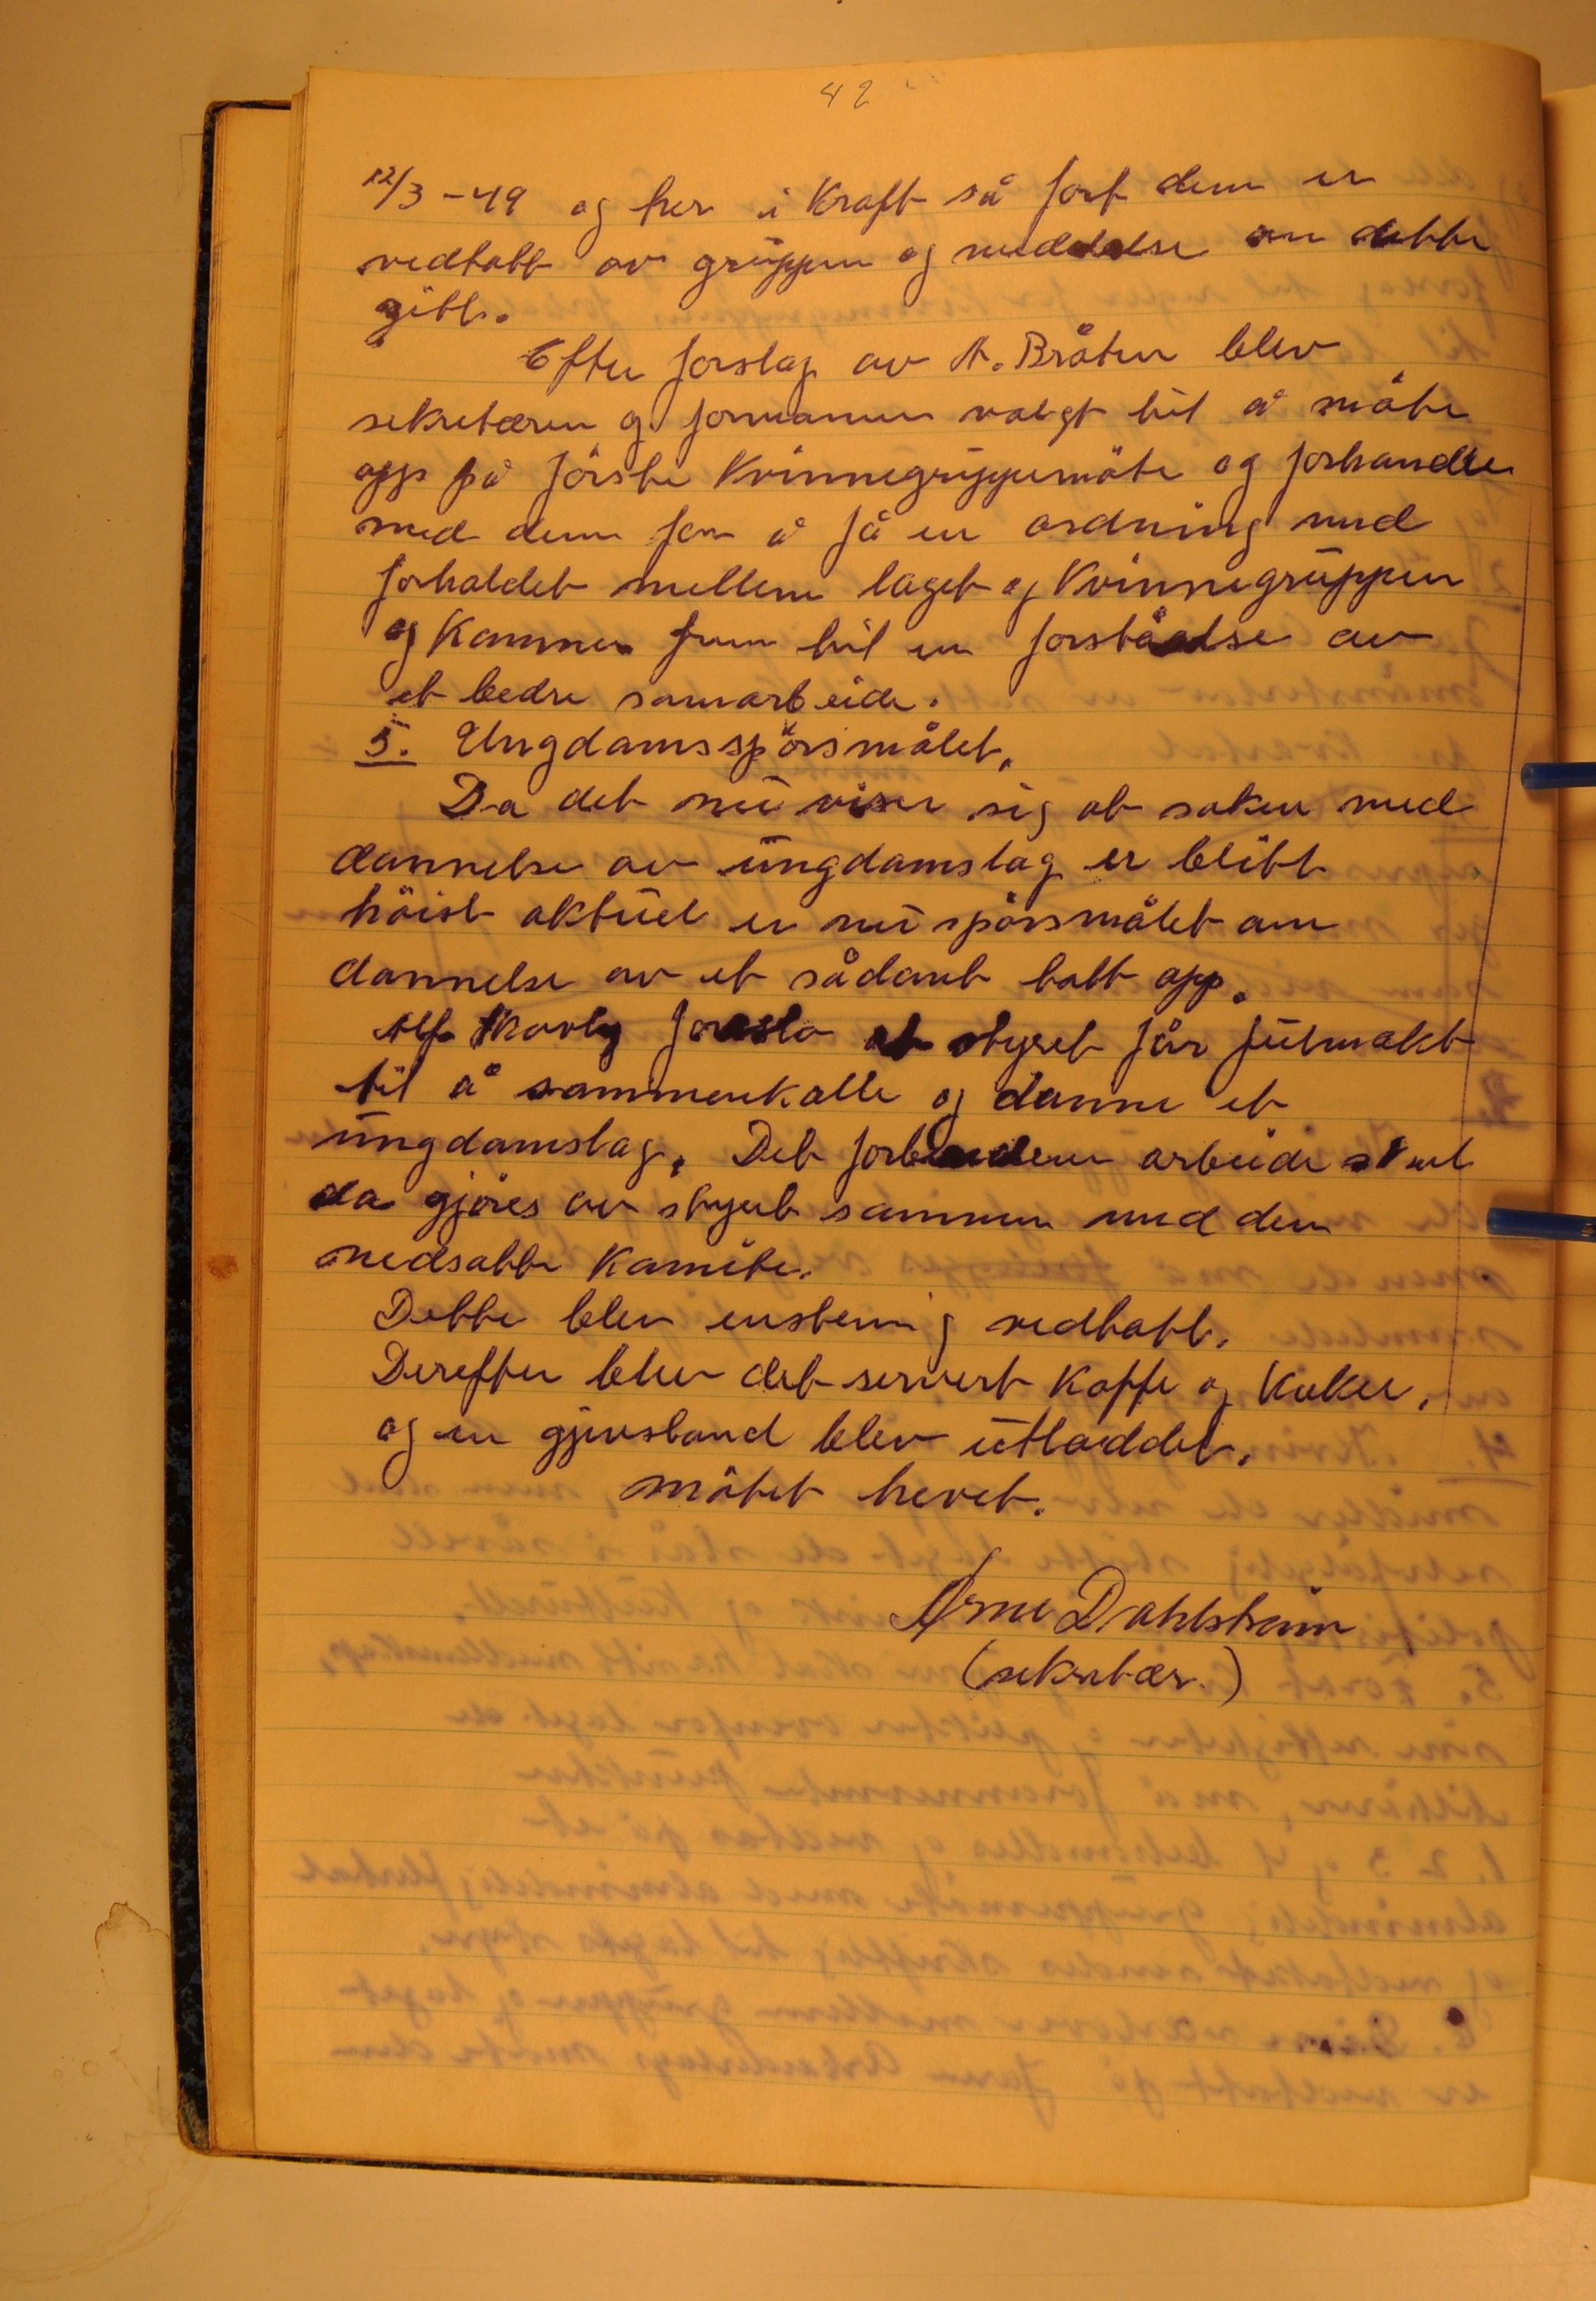 42
12/3 - 49 og trer i Kraft så fort dem er
vedtatt av gruppen og meddelse om dette
gitt.
Efter forslag av A. Bråten blev
sekretæren og formannen valgt til å möte
opp på förste Kvinnegruppemöte og forhandle
med dem for å få en ordning med
forholdet mellem laget og Kvinnegruppen
og Kommer frem til en forståelse av
et bedre samarbeide.
5. Ungdomsspörsmålet.
Da det nu viser sig at saken med
dannelse av ungdomslag er blitt
höist aktuel er nu spörsmålet om
dannelse av et sådant tatt opp.
Alf foreslo at styret får fulmakt
til å sammenkalle og danne et
ungdomslag. Det forberedene arbeide skal
da gjöres av styret sammen med den
nedsatte Komite.
Dette blev enstemig vedtatt.
Derefter blev det servert Kaffe og Kaker,
og en gjenstand blev utloddet.
Mötet hevet.
Arne Dahlstrøm
(sekretær.)